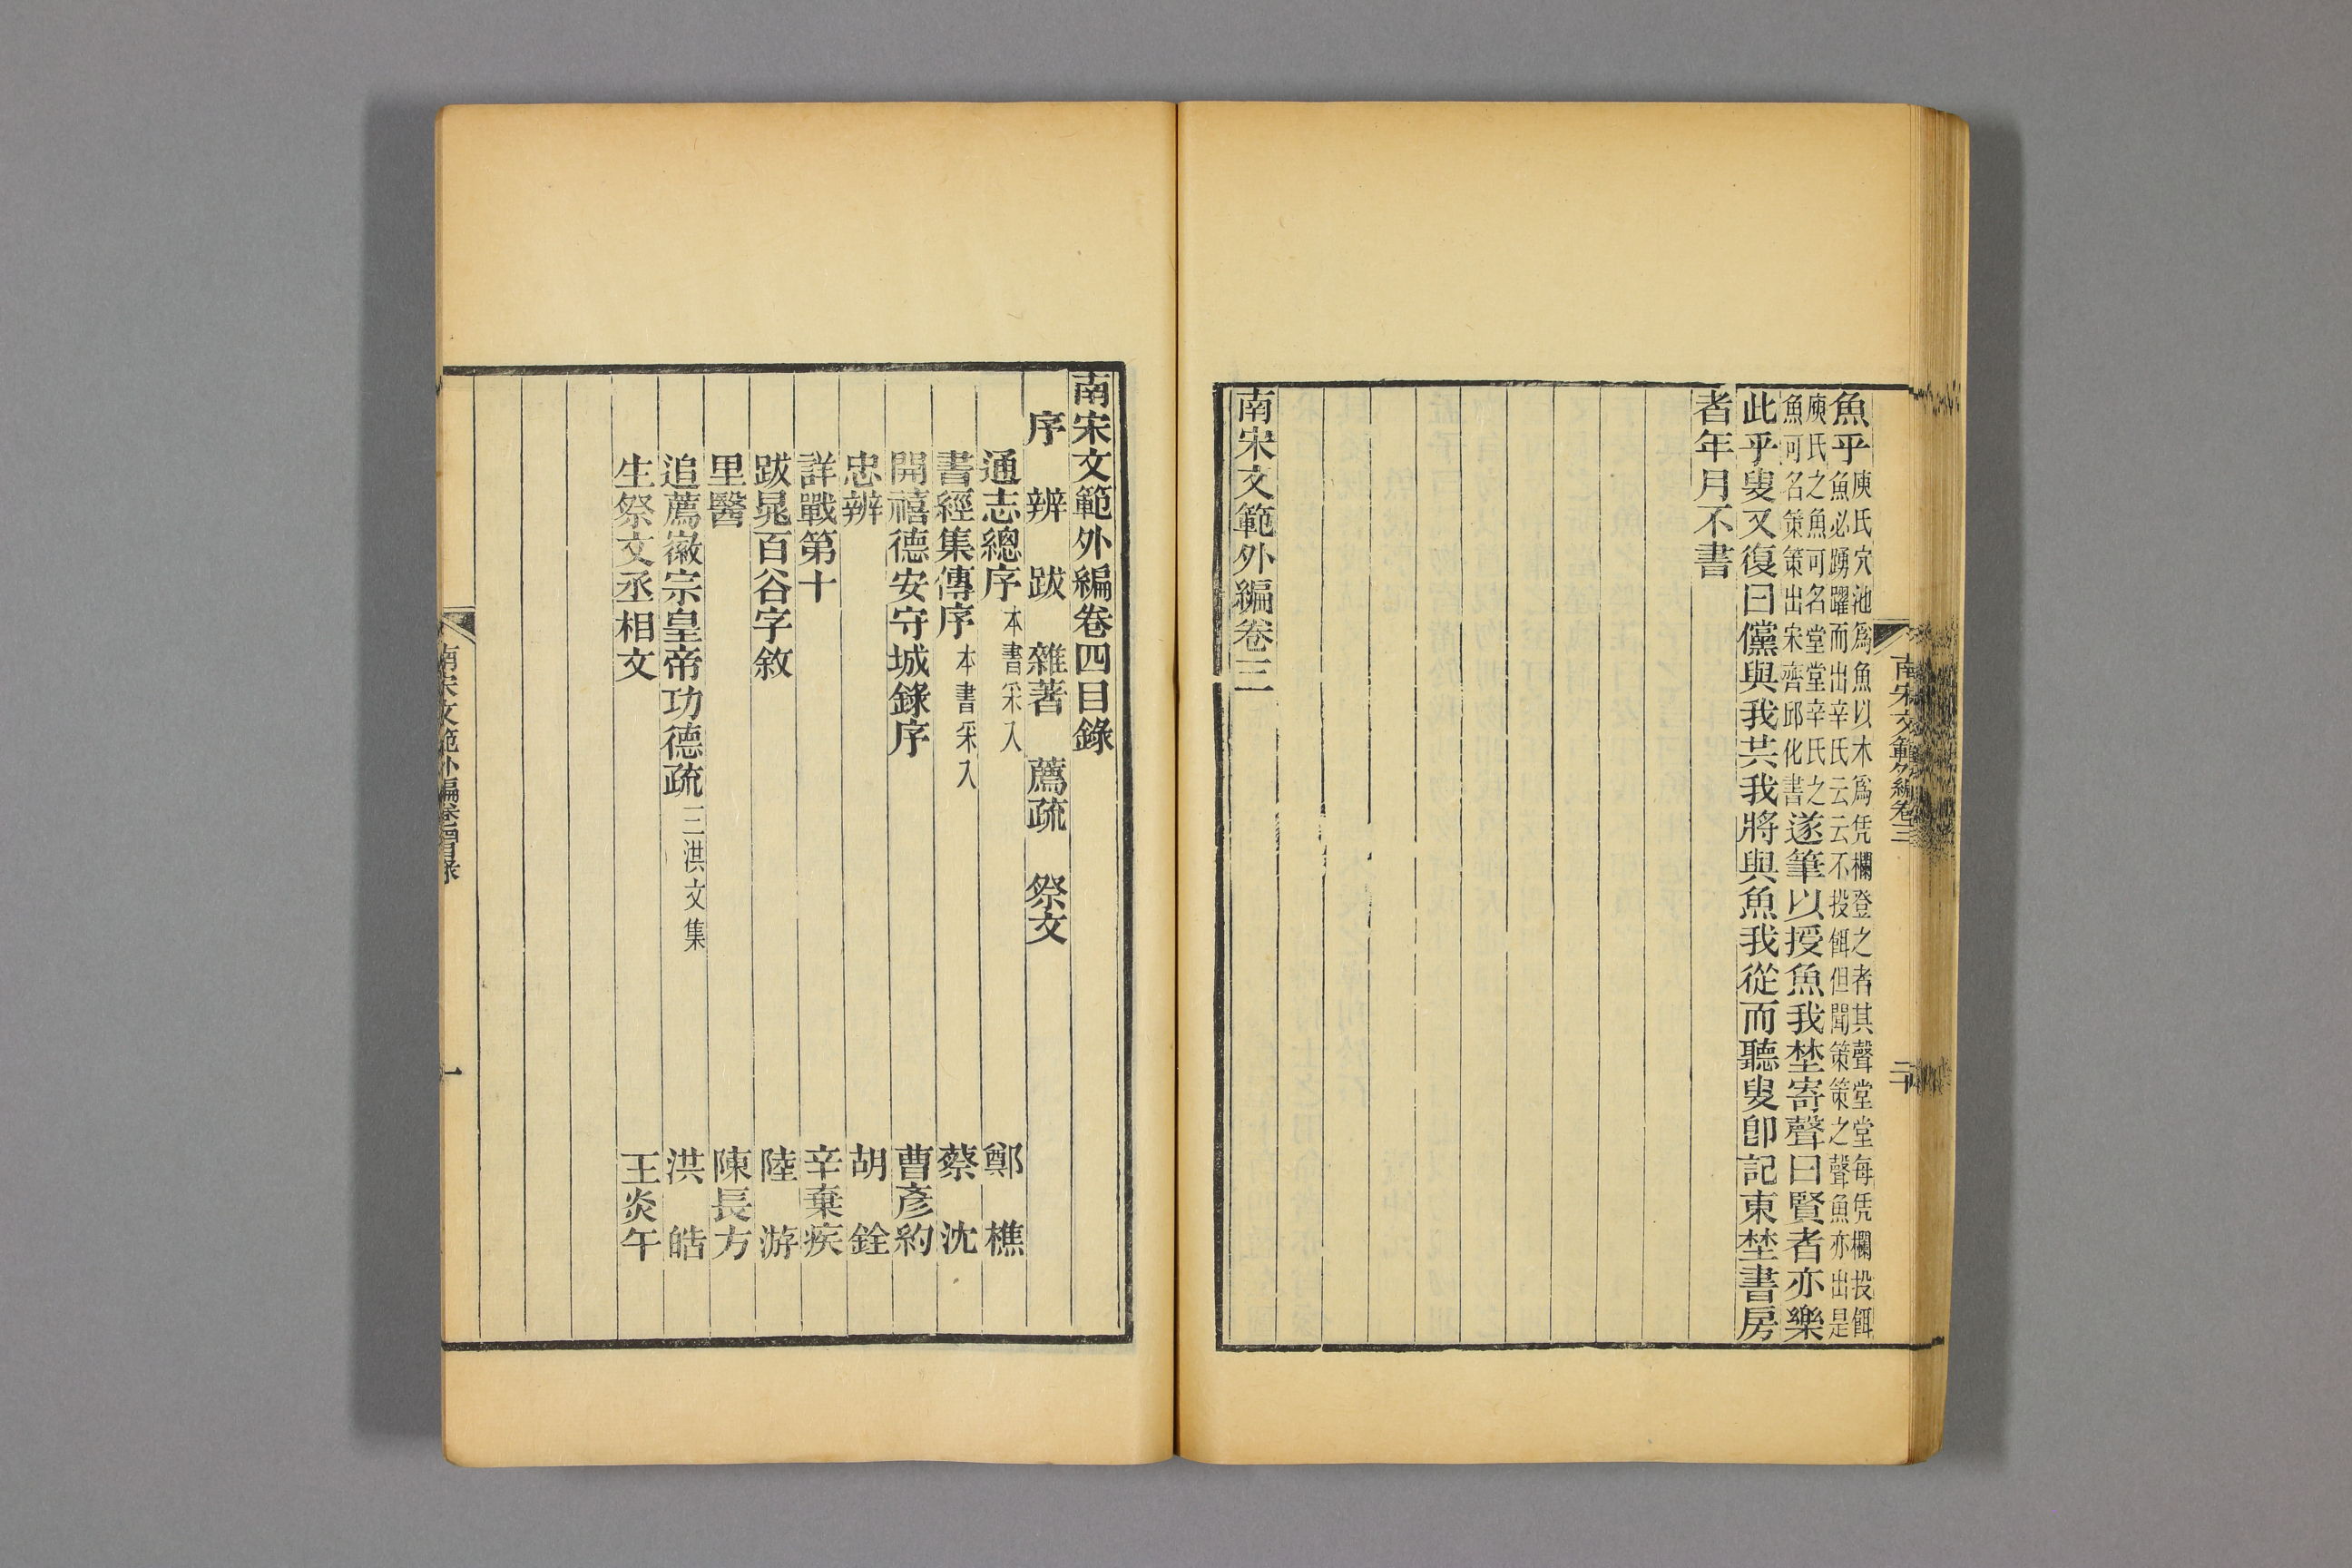 南宋文範外編卷三
二十
魚乎庾氏穴池爲魚以木爲凭欄登之者其聲堂堂每凭欄投餌
魚必踴躍而出辛氏云云不投餌但聞策策之聲魚亦出是
庾氏之魚可名堂堂辛氏之
魚可名策策出宋齊邱化書遂筆以授魚我埜寄聲曰賢者亦樂
此乎叟又復曰儻與我共我將與魚我從而聽叟卽記東埜書房
者年月不書
南宋文範外編卷三
南宋文範外編卷四目錄
序 辨 跋 雜著 薦疏 祭文
通志總序本書采入 鄭樵
書經集傳序本書采入 蔡沈
開禧德安守城錄序 曹彥約
忠辨 胡銓
詳戰第十 辛棄疾
跋晁百谷字敘 陸游
里醫 陳長方
追薦徽宗皇帝功德疏三洪文集 洪皓
生祭文丞相文 王炎午
南宋文範外編卷四目錄
一